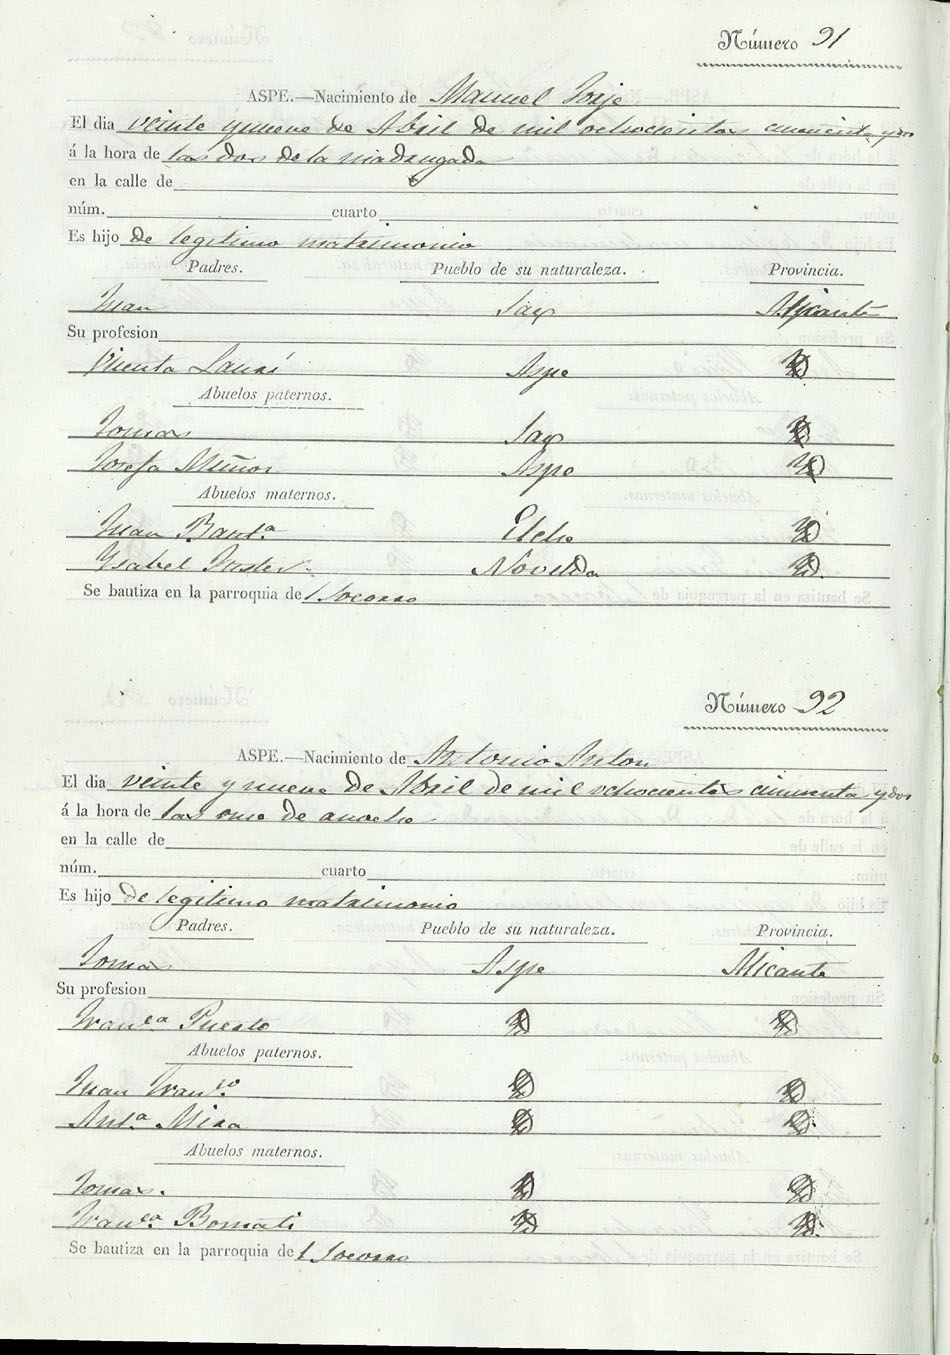 Número 91
ASPE.—Nacimiento de Manuel Jorje
El dia veinte y nueve de Abril de mil ochocientos cincuenta y dos
á la hora de las dos de la madrugada
en la calle de
núm. cuarto
Es hijo de legitimo matrimonio
Padres. Pueblo de su naturaleza. Provincia.
Juan Sax Alicante
Su profesion
Vicenta Aspe Yd
Abuelos paternos.
Tomas Sax Yd
Josefa Muñoz Aspe Yd
Abuelos maternos.
Juan Baut.a Elche Yd
Ysabel Novelda Yd.
Se bautiza en la parroquia del Socorro
Número 92
ASPE.—Nacimiento de Antonio Anton
El dia veinte y nueve de Abril de mil ochocientos cincuenta y dos
á la hora de las onse de anoche
en la calle de
núm. cuarto
Es hijo de legitimo matrimonio
Padres. Pueblo de su naturaleza. Provincia.
Tomas Aspe Alicante
Su profesion
Fran.ca Puerto Yd Yd
Abuelos paternos.
Juan Fran.co Yd Yd
Ant.a Mira Yd Yd.
Abuelos maternos.
Tomas. Yd Yd
Fran.ca Bornati Yd Yd.
Se bautiza en la parroquia del Socorro